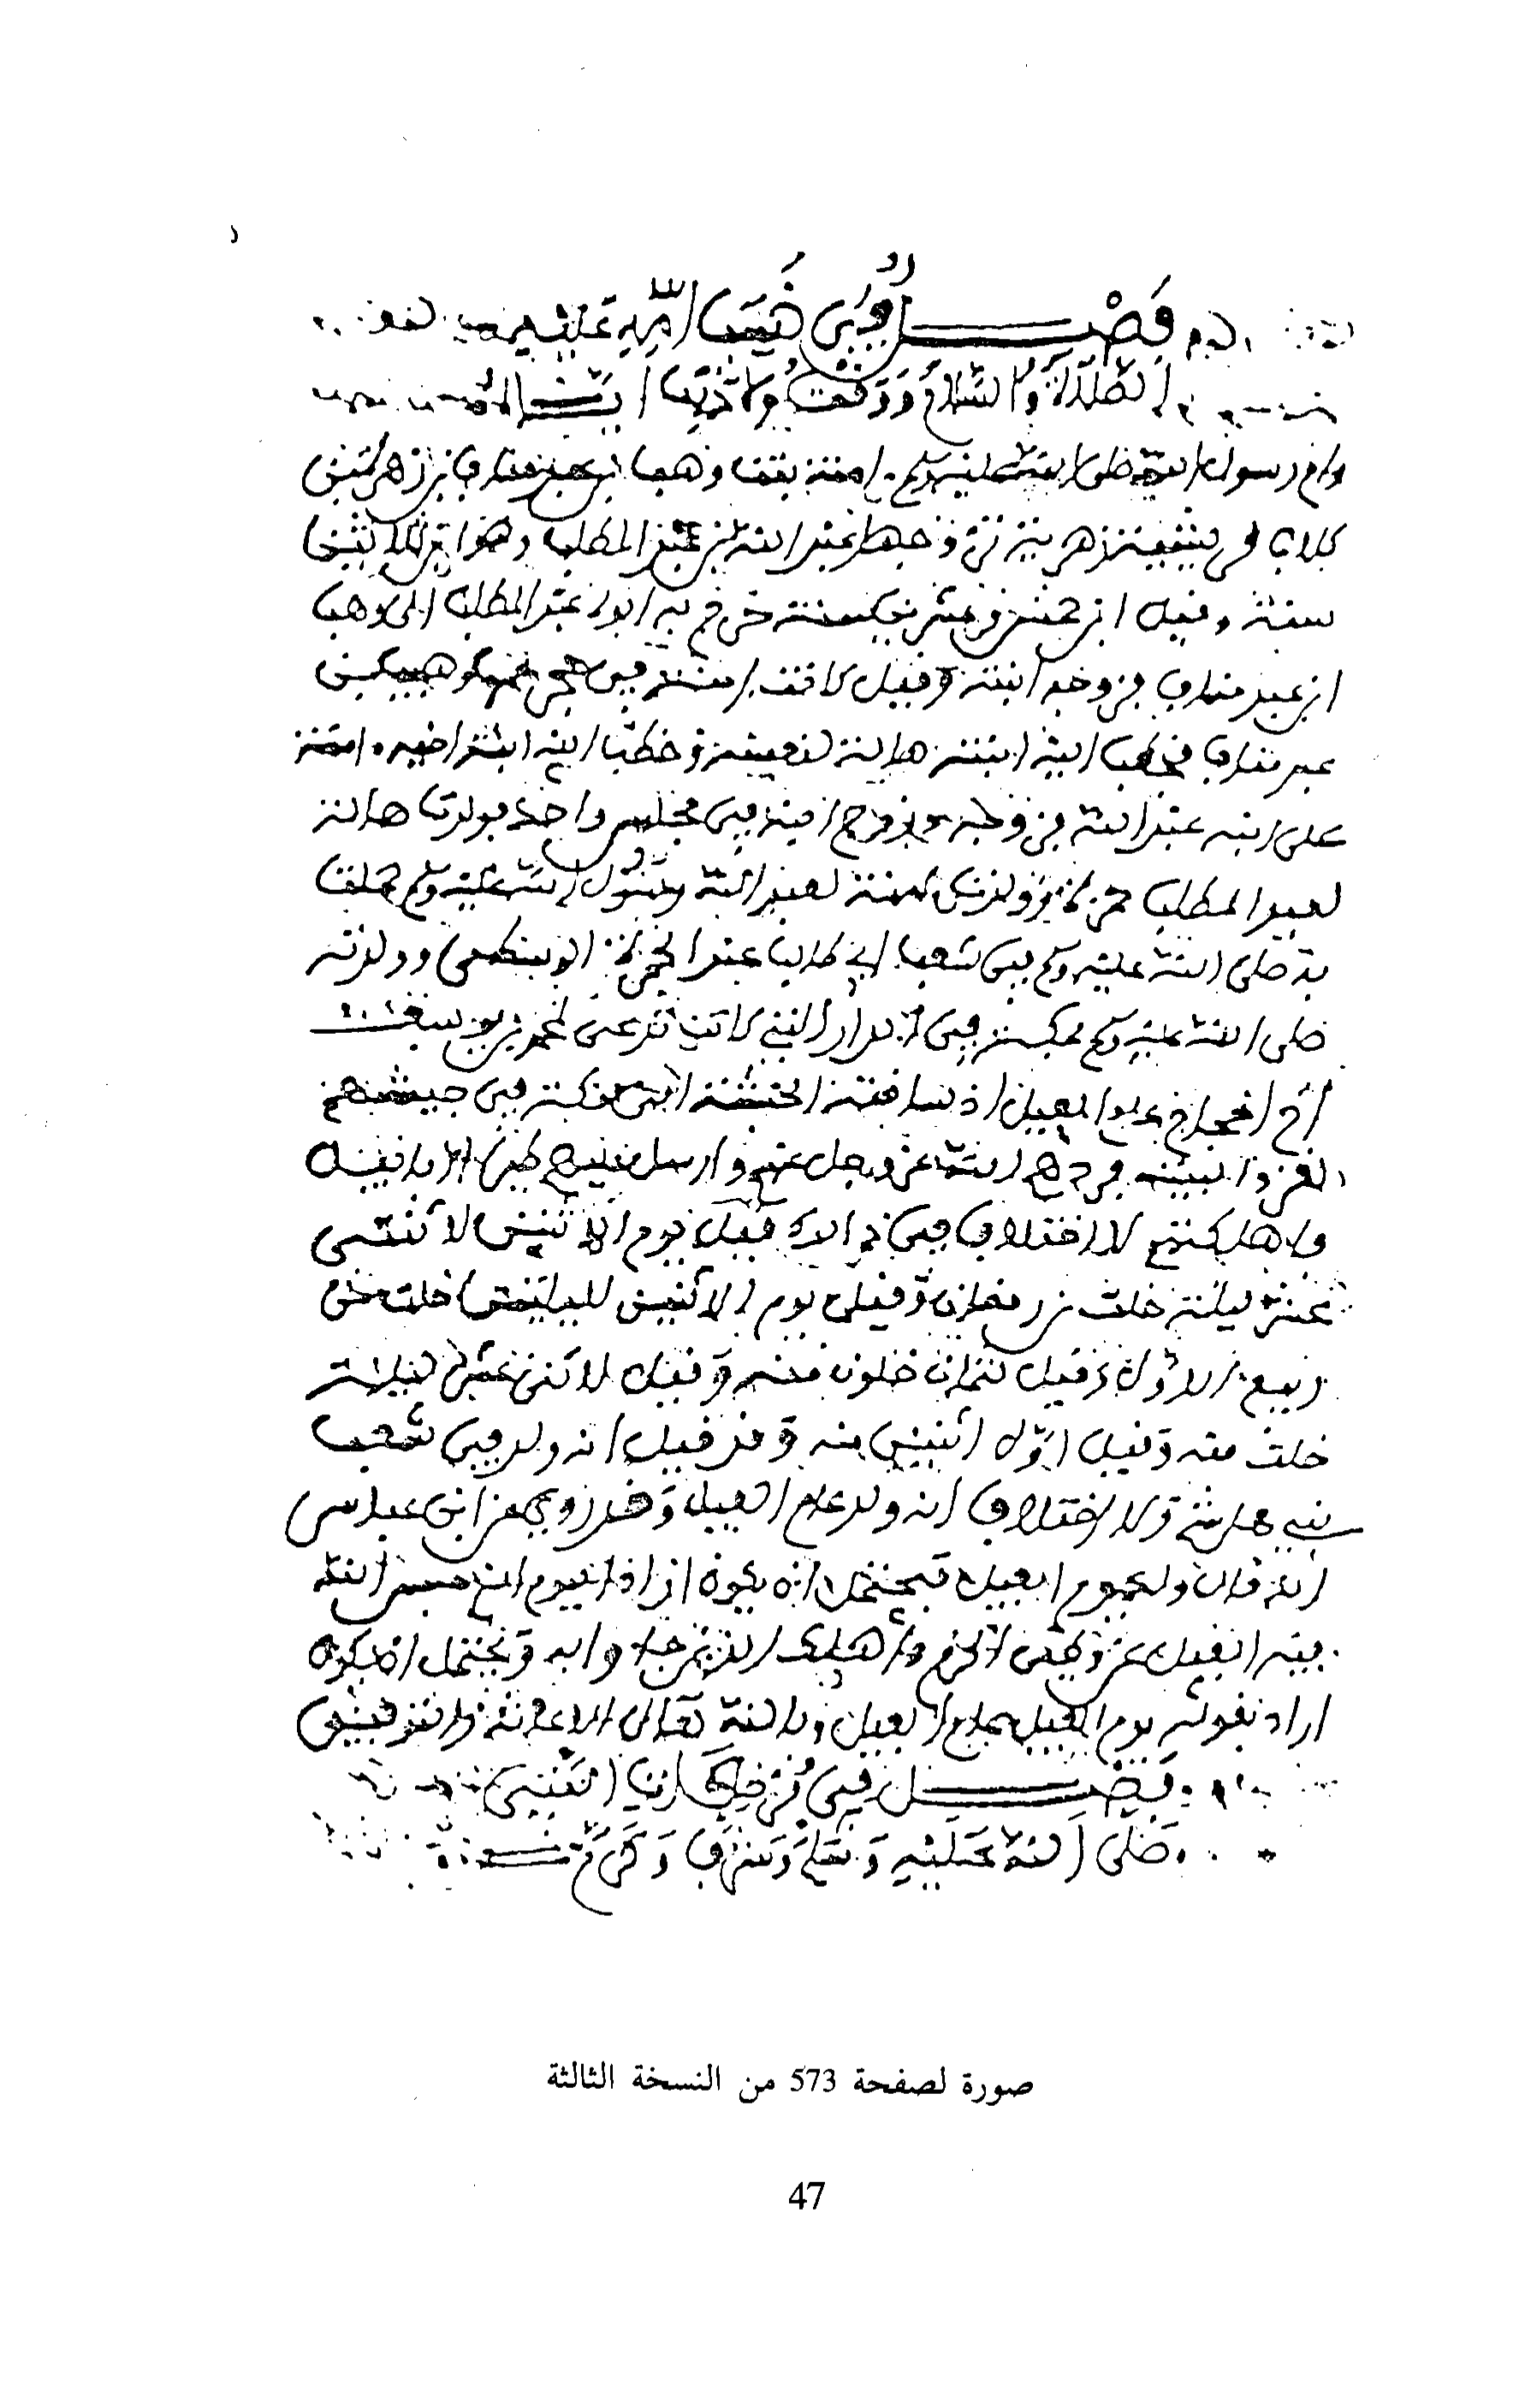 فصل في نسب أمه عليه
الصلاة والسلام ووقت ولادته
وأم رسول الله صلى الله عليه وسلم امنة بنت وهب بن عبد مناف بن زهرة بن
كلاب قرشية زهرية تزوجها عبد الله بن عبد المطلب وهو ابن ثلاثين
سنة وقيل ابن خمس وعشرين سنة خرج به ابوه عبد المطلب الى وهب
ابن عبد مناف فزوجه ابنته وقيل كانت امنة في حجر عمها وهيب بن
عبد مناف فخطب اليه ابنته هالة لنفسه وخطب اليه ابنة اخيه امنة
على ابنه عبد الله فزوجه وزوج ابنه في مجلس واحد فولدت هالة
لعبد المطلب حمزة وولدت امنة لعبد الله رسول الله عليه وسلم حملت
به صلى الله عليه وسلم في شعب ابي طالب عند الجمرة الوسطى وولدته
صلى الله عليه وسلم بمكة في الدار التي كانت تدعى لمحمد بن يوسف
أخ الحجاج عام الفيل اذ ساقته الحبشة الى مكة في جيشهم
لغزو البيت فردهم الله عز وجل عنه وأرسل عليهم طيرا ابابيل
وأهلكتهم لا اختلاف في ذلك قيل يوم الاثنين لاثنتي
عشرة ليلة خلت من رمضان وقيل يوم الاثنين لليلتين خلتا من
ربيع الاول وقيل لثمان خلون منه وقيل لاثنتي عشرة ليلة
خلت منه وقيل اول اثنين منه وقد قيل انه ولد في شعب
بني هاشم ولا اختلاف انه ولد عام الفيل وقد روي عن ابن عباس
انه قال ولد يوم الفيل فيحتمل انه يكون اراد اليوم الذي حبس الله
فيه الفيل عن وطئ الحرم وأهلك الذين جاءوا به ويحتمل ان يكون
اراد بقوله يوم الفيل عام الفيل وبالله تعالى الاعانة والتوفيق
فصل في مرضعات النبي
صلى الله عليه وسلم وشرف وكرم
صورة لصفحة 573 من النسخة الثالثة
47